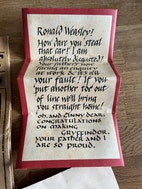 Ronald Weasley!
How dare you steal
that car! I am
absolutely disgusted!
Your father's now
facing an enquiry
at work & it's all
your fault! If you
put another toe out
of line we'll bring
you straight home!
oh, and Ginny dear,
congratulations
on making
Gryffindor,
your father and I
are so proud.